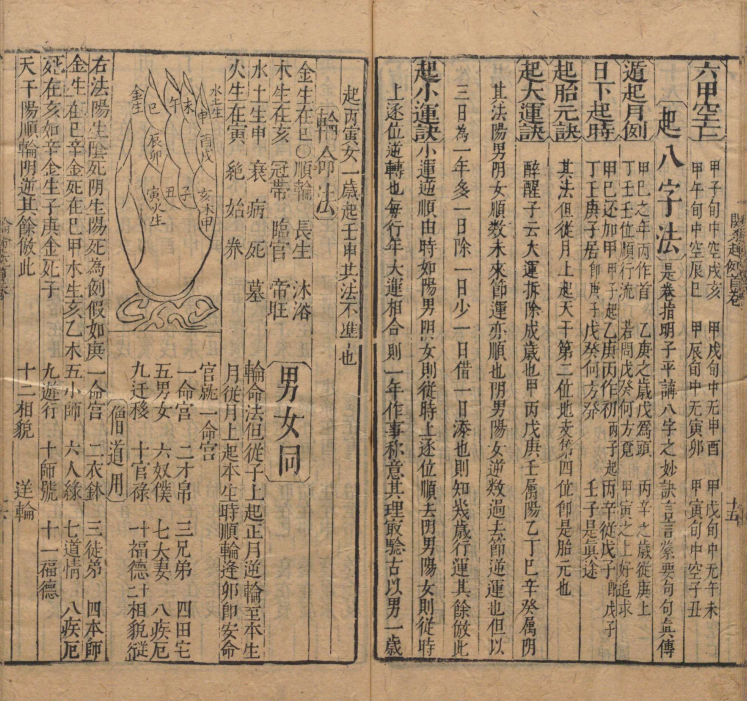 六甲空亡
甲子旬中空戌亥 甲戌旬中无申酉 甲戌旬中无午未
甲午旬中空辰巳 甲辰旬中无寅卯 甲寅旬中空子丑
起八字法 是卷指明子平講八字之妙訣言言綮要句句真傳
遁起月例
甲巳之年丙作首 乙庚之歲戊爲頭 丙辛之歲從庚上
丁壬壬位順行流 若問戊癸何方覓 甲寅之上好追求
日下起時
甲巳还加甲 甲子起 乙庚丙作初 丙子起 丙辛從戊子 即戊子
丁壬庚子居 即庚子 戊癸何方發 壬子是真途
起胎元訣 其法但從月上起天干第二位地支第四位卽是胎元也
起大運訣 醉醒子云大運拆除成歲也甲丙戊庚壬屬陽乙丁巳辛癸属阴
其法陽男阴女順数未來節運亦順也阴男陽女逆数過去節逆運也但以
三日為一年多一日除一日少一日借一日添也則知幾歲行運其餘倣此
起小運訣 小運逆順由時如陽男阴女則從時上逐位順去阴男陽女則從時
上逐位逆轉也每行年大運相合則一年作事称意其理敢驗古以男一歲
起丙寅女一歲起壬申其法不準也
輪命法
金生在巳○順輪 長生 沐浴
木生在亥 冠帯 臨官 帝旺
水土生申 衰 病 死 墓
火生在寅 絶 始 养
男女同
輪命法但從子上起正月逆輪至本生
月從月上起本生時順輪逢卯即安命
官就一命宮
一命宮 二才帛 三兄弟 四田宅
五男女 六奴僕 七夫妻 八疾厄
九迁移 十官禄 十一福德十二相貌從
水土生
申 酉 戌
亥木甲
未
子
午
丑
巳
辰 卯
寅火生
金生
僧道用
右法陽生陰死阴生陽死為例假如庚
金生在巳辛金死在巳甲木生亥乙木
死在亥如辛金生子庚金死子
天干陽順輪阴逆其餘倣此
一命宮 二衣鉢 三徒弟 四本師
五小師 六人緣 七道情 八疾厄
九遊行 十師號 十一福德
十二相貌 逆輪